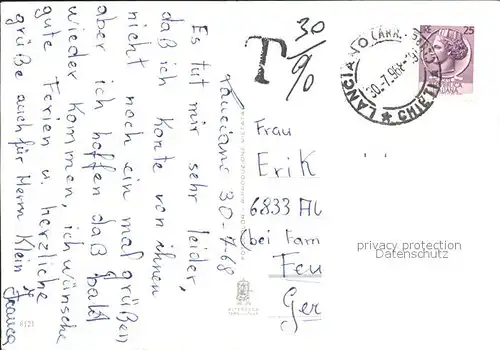 Lanciano 30-7-68
Es tut mir sehr leider,
daß ich konte von ihnen
nicht noch ein mal grüßen
aber ich hoffen daß bald
wieder kommen, ich wünsche
gute Ferien u. herzliche
grüße auch für Herrn Klein
Franca
6121
T 30/90
LANCIANO
30.-7.968
CHIETI
25
Frau
Erik
6833
(bei Fam
Feu
Ger
privacy protection
Datenschutz